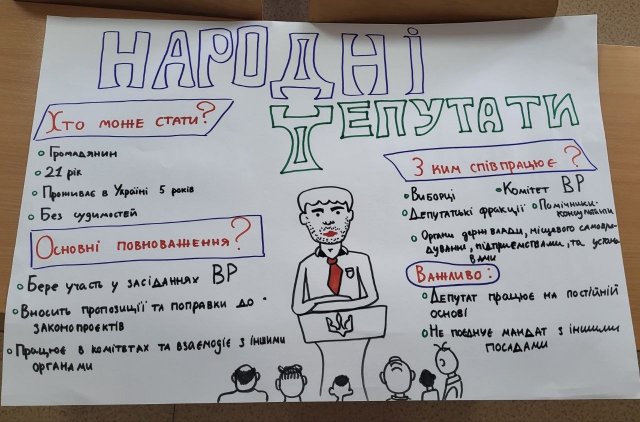 НАРОДНІ
ДЕПУТАТИ
Хто може стати?
Громадянин
21 рік
Проживає в Україні 5 років
Без судимостей
Основні повноваження?
Бере участь у засіданнях ВР
Вносить пропозиції та поправки до
законопроєктів
Працює в комітетах та взаємодіє з іншими
органами
З ким співпрацює?
Виборці
Комітет ВР
Депутатські фракції
Помічники-
консультанти
Органи держ влади, місцевого самовря-
дування, підприємствами, та устано
вами
Важливо:
Депутат працює на постійній
основі
Не поєднує мандат з іншими
посадами